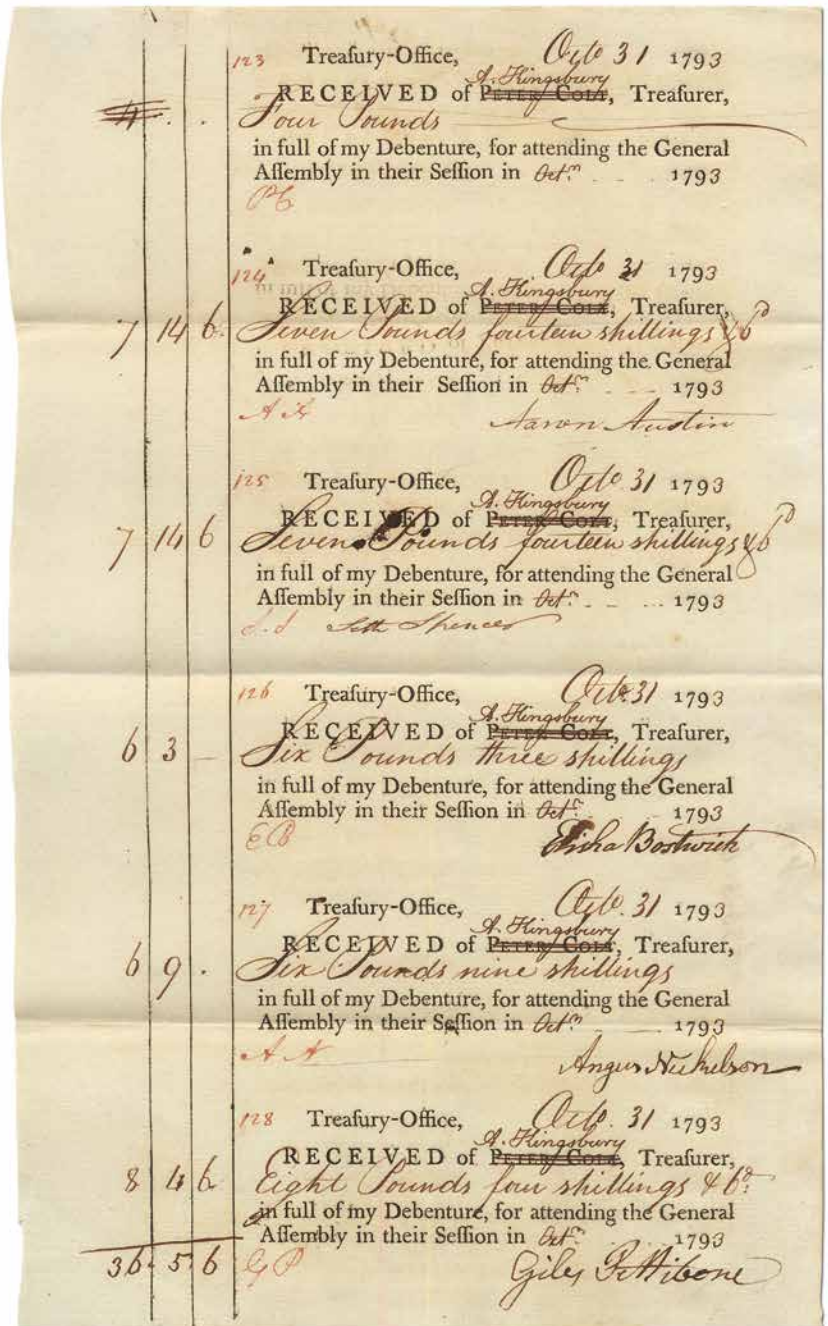 123 Treaſury-Office, Octo 31 1793
A. Kingsbury
RECEIVED of PETER COLT, Treaſurer,
4 . . Four Pounds
in full of my Debenture, for attending the General
Aſſembly in their Seſſion in Octr. 1793
PC
124 Treaſury-Office, Octo 31 1793
A. Kingsbury
RECEIVED of PETER COLT, Treaſurer,
7 14 6. Seven Pounds fourteen shillings & 6d
in full of my Debenture, for attending the General
Aſſembly in their Seſſion in Octr. 1793
A A Aaron Austin
125 Treaſury-Office, Octo 31 1793
A. Kingsbury
RECEIVED of PETER COLT, Treaſurer,
7 14 6 Seven Pounds fourteen shillings & 6d
in full of my Debenture, for attending the General
Aſſembly in their Seſſion in Octr. 1793
S. S Seth Spencer
126 Treaſury-Office, Octo. 31 1793
A. Kingsbury
RECEIVED of PETER COLT, Treaſurer,
6 3 – Six Pounds three shillings
in full of my Debenture, for attending the General
Aſſembly in their Seſſion in Octr. 1793
E B Elisha Bostwick
127 Treaſury-Office, Octo. 31 1793
A. Kingsbury
RECEIVED of PETER COLT, Treaſurer,
6 9 . Six Pounds nine shillings
in full of my Debenture, for attending the General
Aſſembly in their Seſſion in Octr. 1793
A N Angus Nickelson
128 Treaſury-Office, Octo. 31 1793
A. Kingsbury
RECEIVED of PETER COLT, Treaſurer,
8 4 6 Eight Pounds four shillings & 6d.
in full of my Debenture, for attending the General
Aſſembly in their Seſſion in Octr. 1793
36 5 6 G P Giles Pettibone